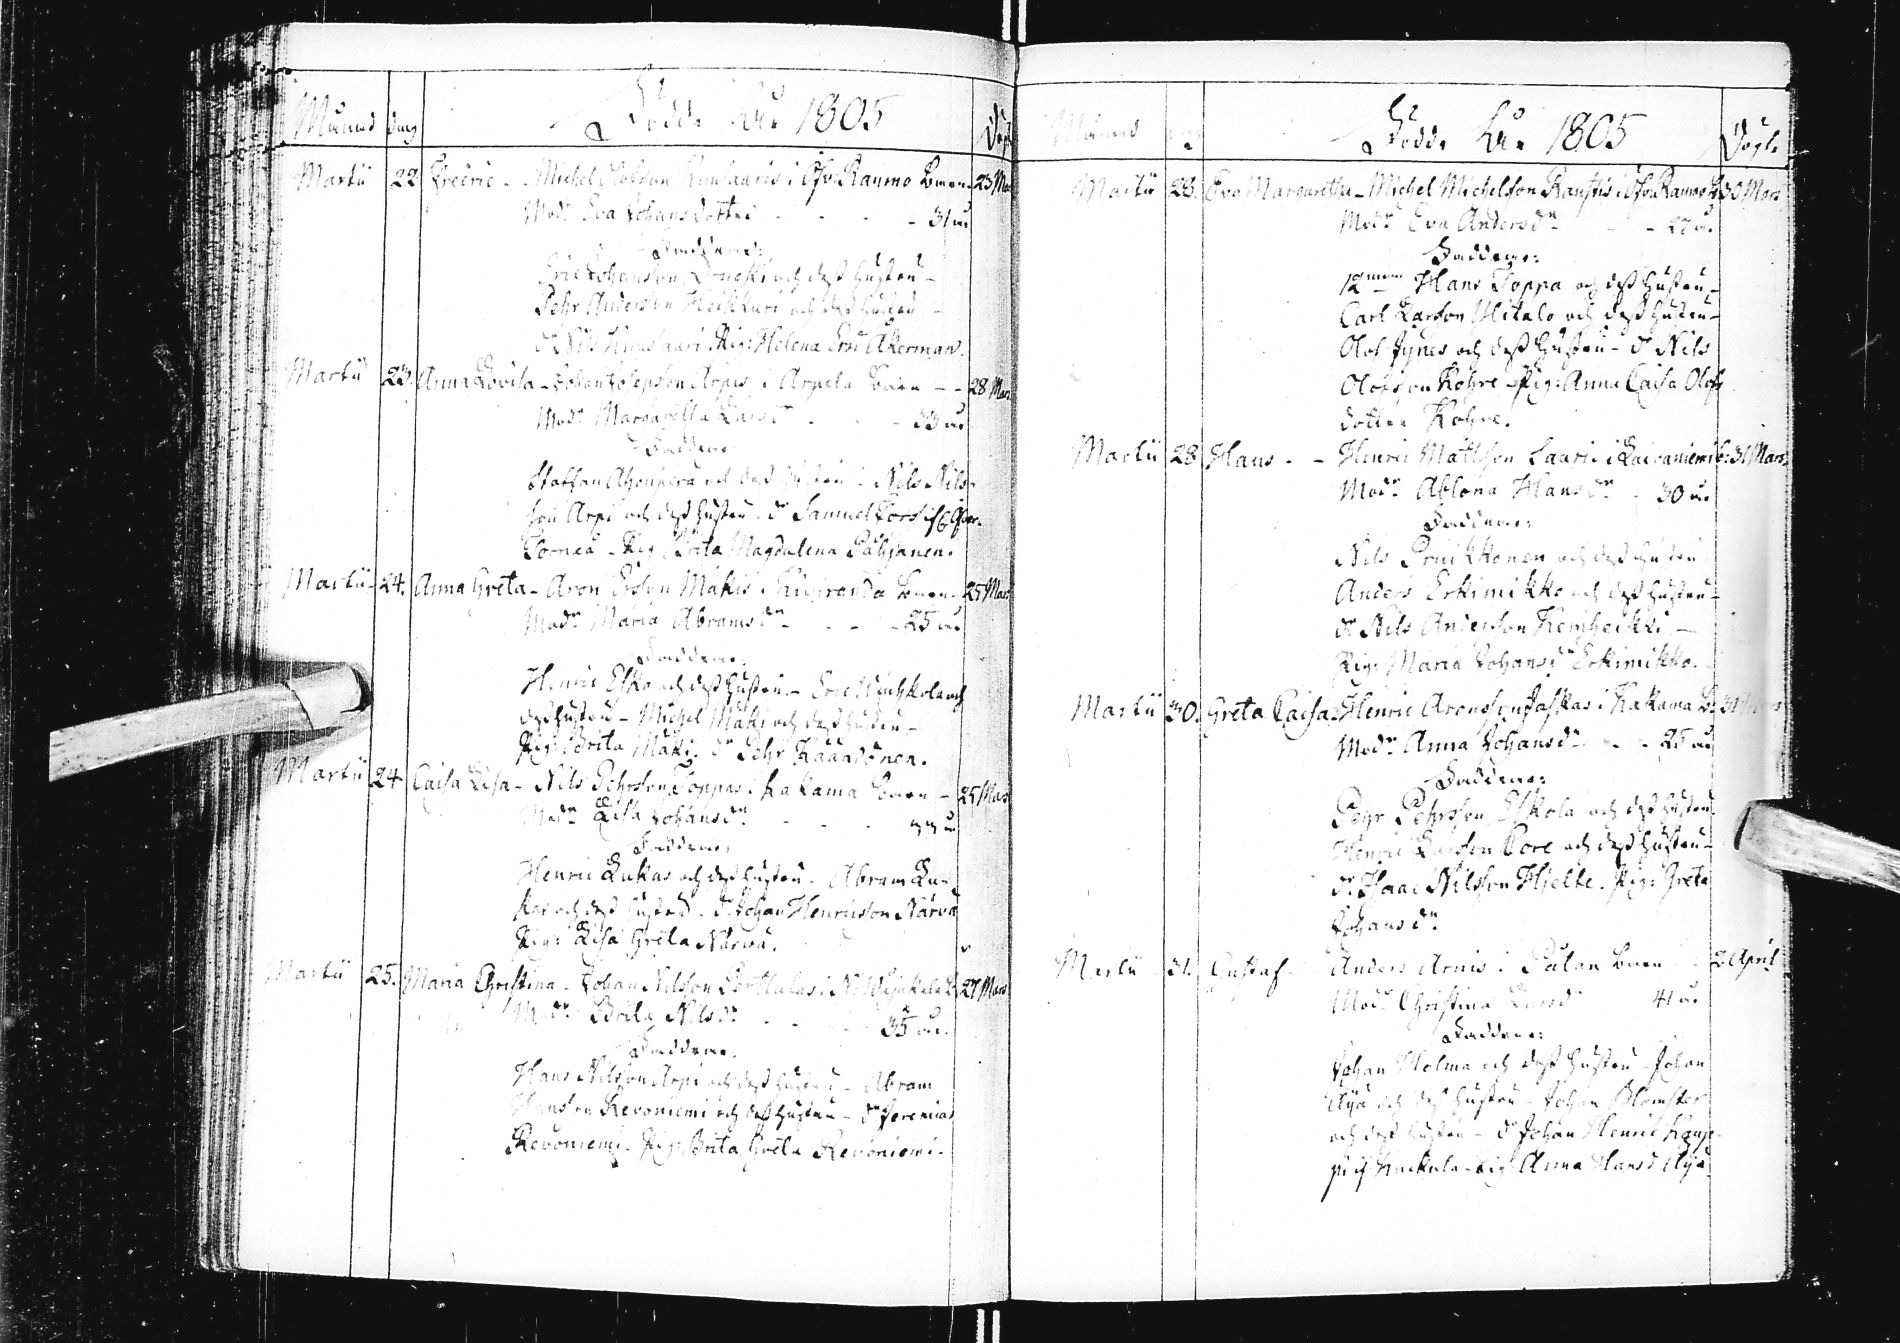 Månad dag Födde År 1805 Döpt
Martii 22 Fredric - Michel Olofson i Öfv. Raumo Barn 23 Mar
Modr Eva Johansdotter - - - 31 år
Faddrar:
Eric Johanson och dess hustru -
Pehr Anderson Heikkuri och dess hustru -
dr Nils Pig: Helena Ersd. Åkerman.
Martii 23. Anna Lovisa - Johan Josepson Arpis i Arpela barn - - 28 Mars
Modr Margaretha Larsdr - - 33 år
Faddrar
Staffan och dess hustru - Nils Nils-
son Arpi och dess hustru - dr Samuel Fors if. Öfver-
Torneå - Pig Brita Magdalena
Martii 24. Anna Greta - Aron Erson Mäkis i Kiviranda barn - 25 Mars
Modr Maria Abramsdr - - - 25 år
Faddrar:
Henric Esko och dess hustru - Eric och
dess hustru - Michel Mäki och dess hustru -
Pig: Brita Mäki. dr Pehr
Martii 24 Caisa Lisa - Nils Pehrson Toppas i Kakama barn - 25 Mars
Modr Lisa Johansdr - - - år
Faddrar:
Henric Lukas och dess hustru - Abram Lu-
kas och dess hustru. dr Johan Henricson Närvä
Pig: Lisa Greta Närvä.
Martii 25. Maria Christina - Johan Nilson i N. B. 27 Mars
Modr Brita Nilsdr - - - 35 år.
Faddrar:
Hans Nilson Arpi och dess hustru - Abram
Hanson Revoniemi och dess hustru - dr Jeremias
Revoniemi. Pig: Brita Greta Revoniemi.
Månad Födde År 1805 Döpte
Martii 28. Eva Margaretha - Michel Michelson i Öfv. Raumo B. 30 Mars
Modr Eva Andersdr - - - 27 år
Faddrar:
12man Hans Toppa och dess hustru -
Carl Larson Ylitalo och dess hustru -
Olof Jynes och dess hustru - dr Nils
Olofson Rohre - Pig: Anna Caisa Olofs
dotter Rohre.
Martii 28 Hans - - Henric Mattson Lauris i Laivaniemi b. 31 Mars
Modr Ablona Hansdr - 30 år
Faddrar:
Nils Pruikkonen och dess hustru
Anders Erkimikko och dess hustru -
dr Nils Anderson -
Pig: Maria Johansdr Erkimikko.
Martii 30. Greta Caisa - Henric Aronson Jaskas i Kakama B. 31 Mars
Modr Anna Johansdr - - - 25 år
Faddrar:
Pehr Pehrson Eskola och dess hustru
Henric Larson Pore och dess hustru -
dr Isaac Nilsson Hjelte. Pig: Greta
Johansdr.
Martii 31. Gustaf - Anders Arnis i barn - 2 April
Modr Christina Larsdr 41 år
Faddrar:
Johan Holma och dess hustru - Johan
Alja och dess hustru - Johan Blomster
och dess hustru - dr Johan Henric
Pig: Anna Hansd. Alja